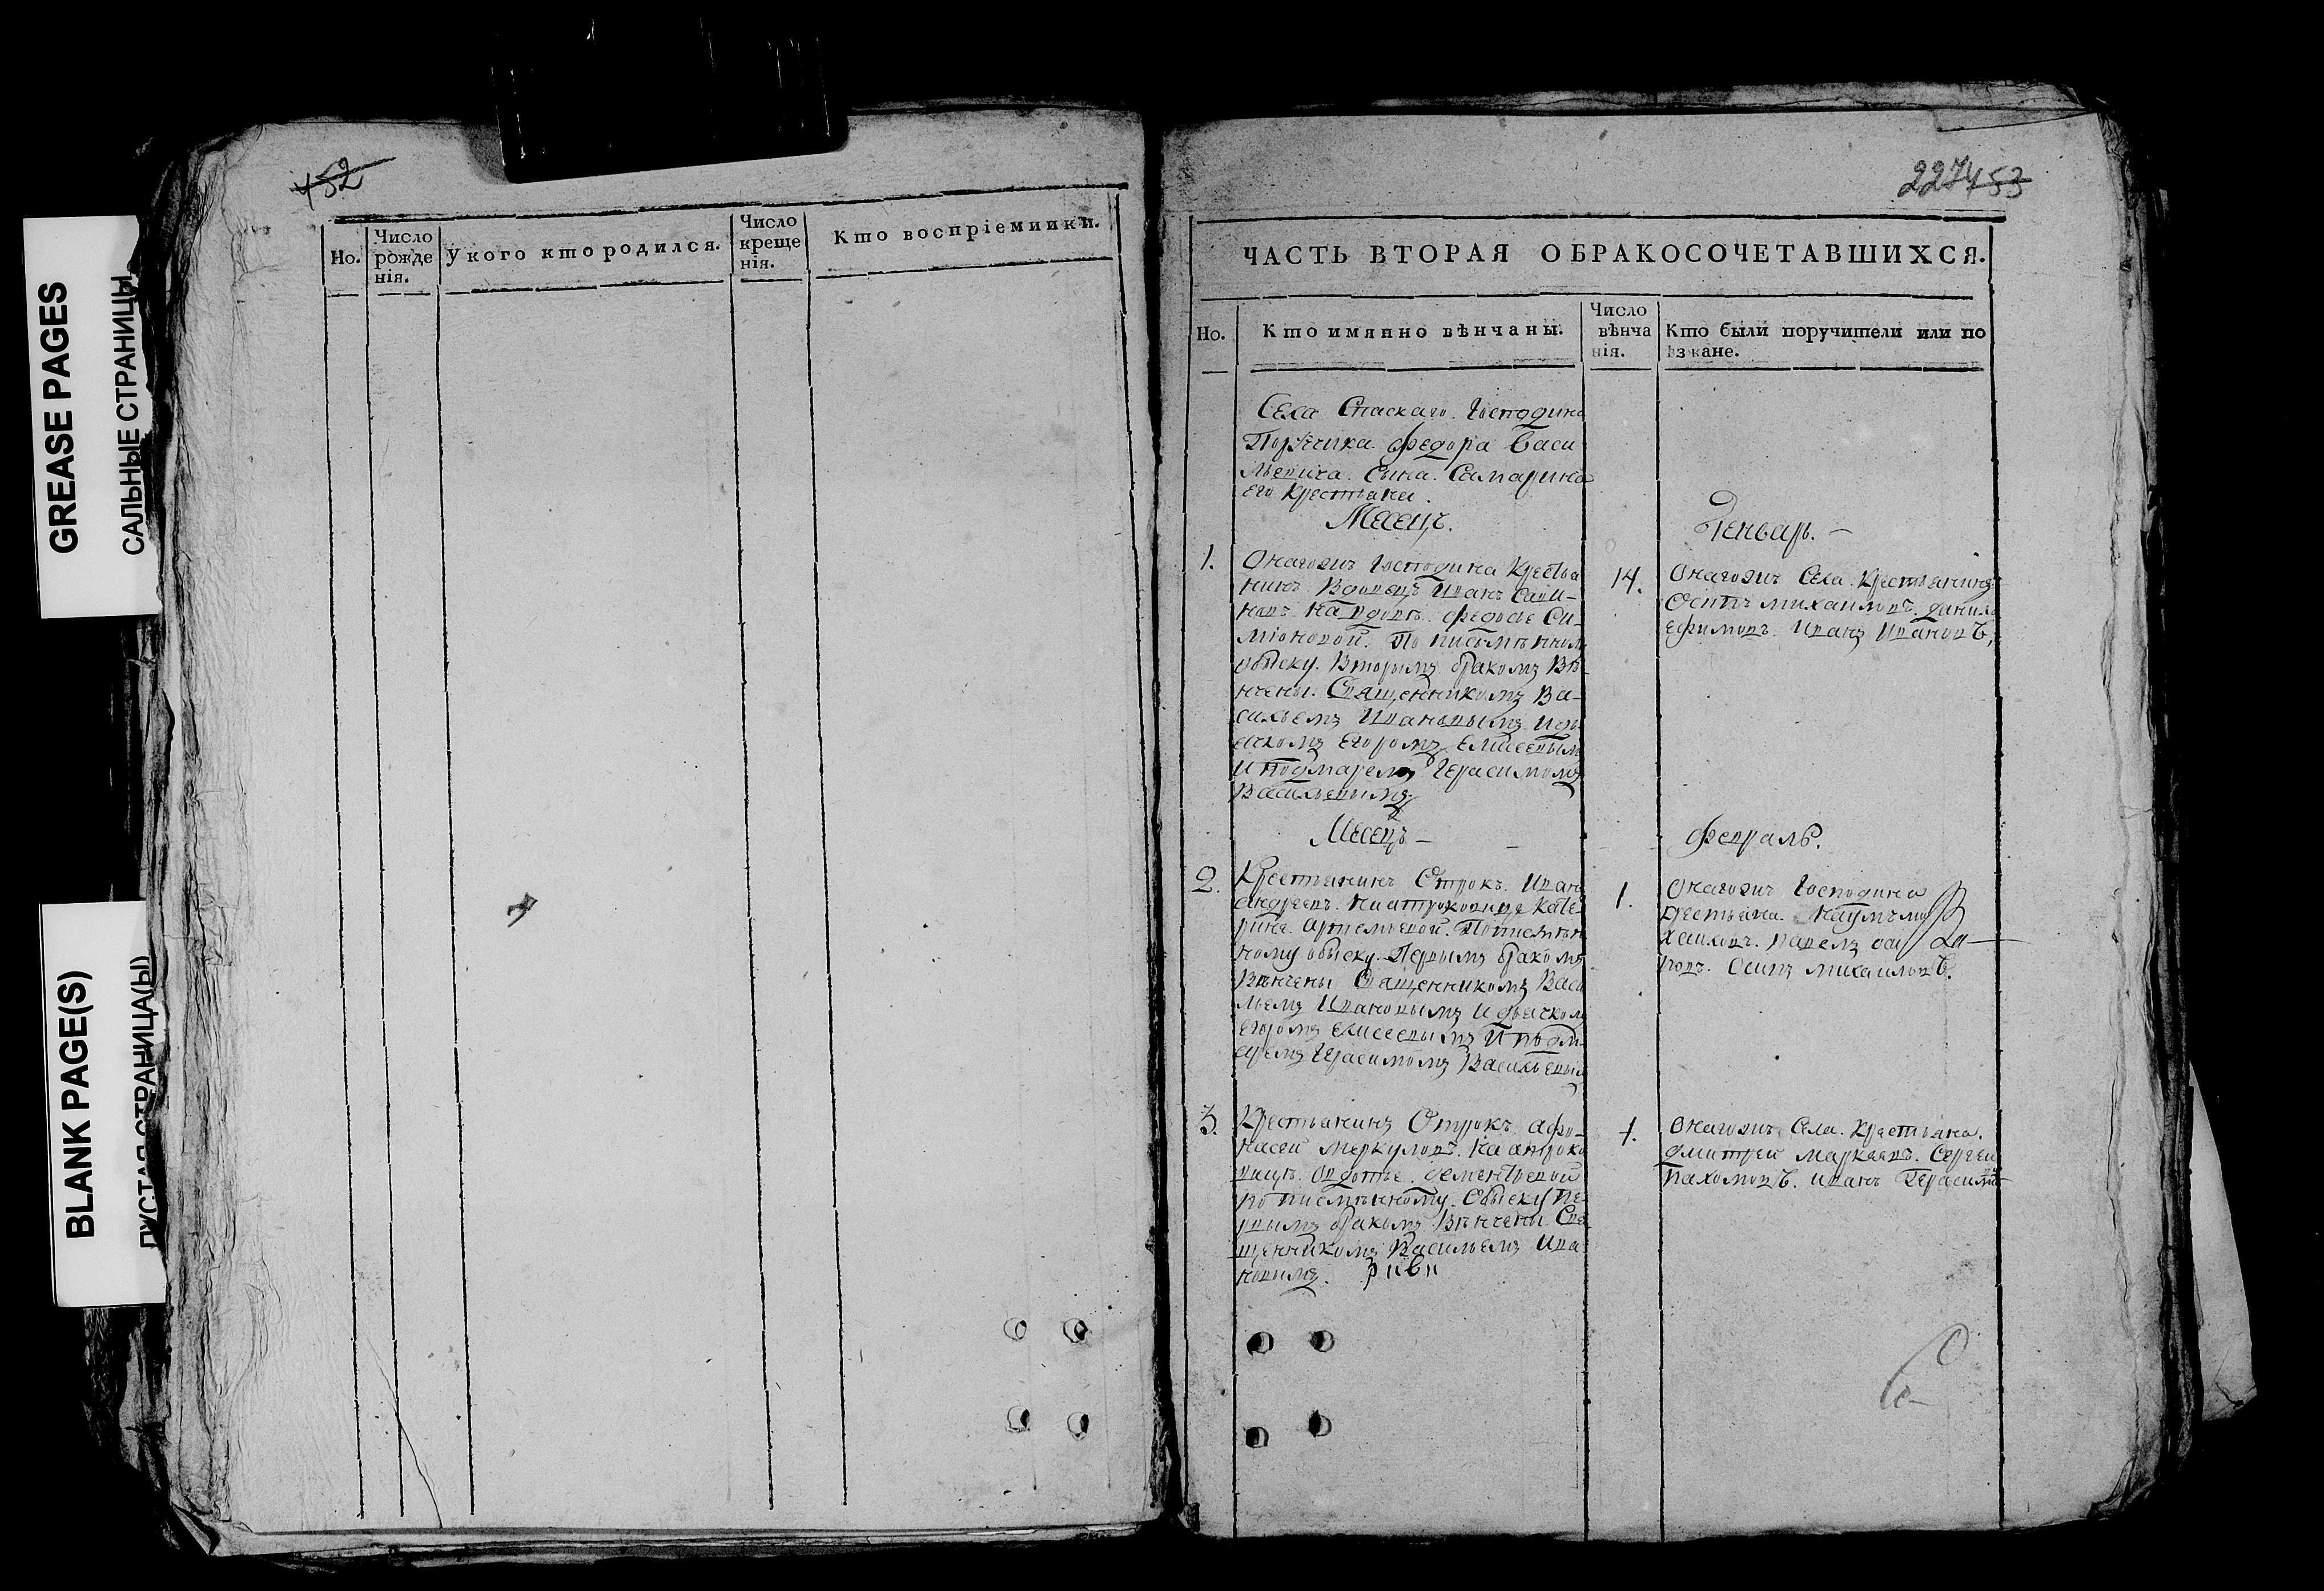 GREASE PAGES
САЛЬНЫЕ СТРАНИЦЫ
BLANK PAGE(S)
ПУСТАЯ СТРАНИЦА(Ы)
452
Но.
Число
рожде
нія.
У кого кто родился.
Число
креще
нія.
Кто воспріемники.
227 453
ЧАСТЬ ВТОРАЯ ОБРАКОСОЧЕТАВШИХСЯ.
Но.
Кто имянно вѣнчаны.
Число
вѣнча
нія.
Кто были поручители или по
ѣзжане.
Села Спаскаго. Господина
Порутчика. Федора Васи
льевича. Сына. Самарина
его крестьяне.
Месецъ.
Генварь.
1.
Онагожъ господина крестья
нинъ вдовецъ Иванъ
на вдовѣ. Федосье Си-
міоновой. По писмѣнном
обыску. Вторымъ бракомъ вѣ-
нчены. Священникомъ Ва-
сильемъ Ивановымъ Идь
ячкомъ Егоромъ Елисеевым
Герасимомъ
Васильевымъ
14.
Онагожъ Села. Крестьянинъ
Осипъ Михаиловъ. Данила
Ефимовъ. Иванъ Ивановъ,
Месецъ
Февраль.
2.
Крестьянинъ Отрокъ. Иванъ
Андреевъ. На отроковице Кате-
рине. Артемьевой. Пописмѣн
ному обыску. Первымъ бракомъ
Вѣнчены Священникомъ Васи
льемъ Ивановымъ Идьячком
Егоромъ Елисеевымъ
Герасимомъ Васильевым
1.
Онагожъ Господина
крестьяна. Наумъ ми
хаиловъ. Павелъ
Осипъ Михаиловъ.
3.
Крестьянинъ Отрокъ. Афо-
насеи Меркуловъ. На отроко
вицѣ. Овдотье. Дементьевой
по писмѣнному. Обыску пе-
рвымъ бракомъ. Вѣнчены Свя
щенникомъ Васильемъ Ива
новымъ.
1.
Онагожъ Села. Крестьяна.
Дмитреи Маркаевъ. Сергеи
Пахомовъ. Иванъ Герасимов